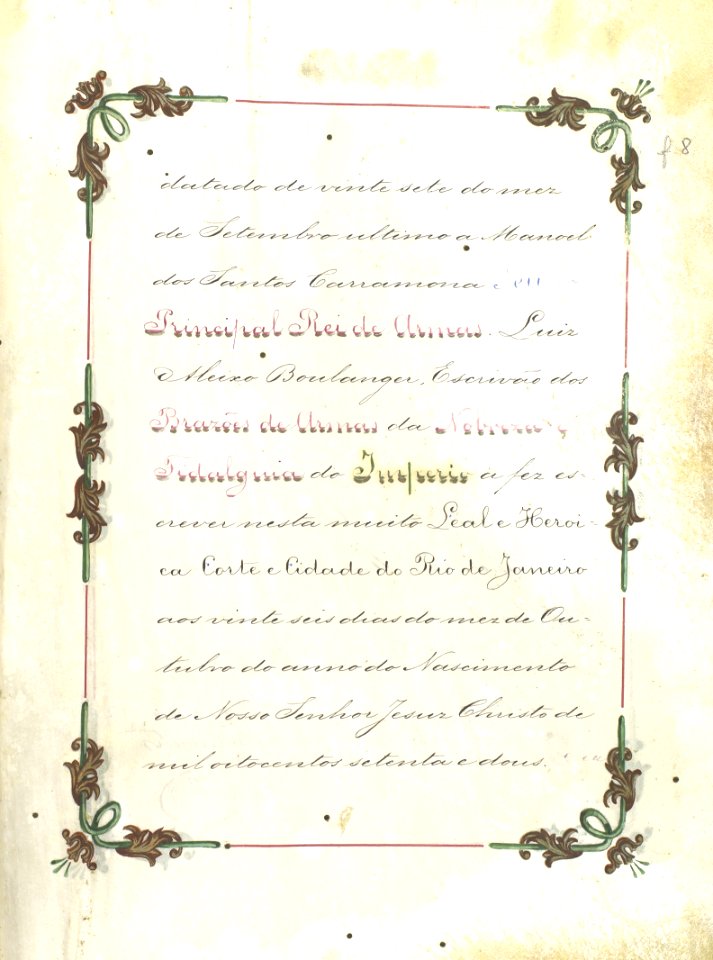 f 8
datado de vinte sete do mez
de Setembro ultimo a Manoel
dos Santos Carramona
Principal Rei de Armas. Luiz
Aleixo Boulanger, Escrivão dos
Brazões de Armas da Nobreza e
Fidalguia do Imperio a fez es-
crever nesta muito Leal e Heroi-
ca Corte e Cidade do Rio de Janeiro
aos vinte seis dias do mez de Ou-
tubro do anno do Nascimento
de Nosso Senhor Jesuz Christo de
mil oitocentos setenta e dous.